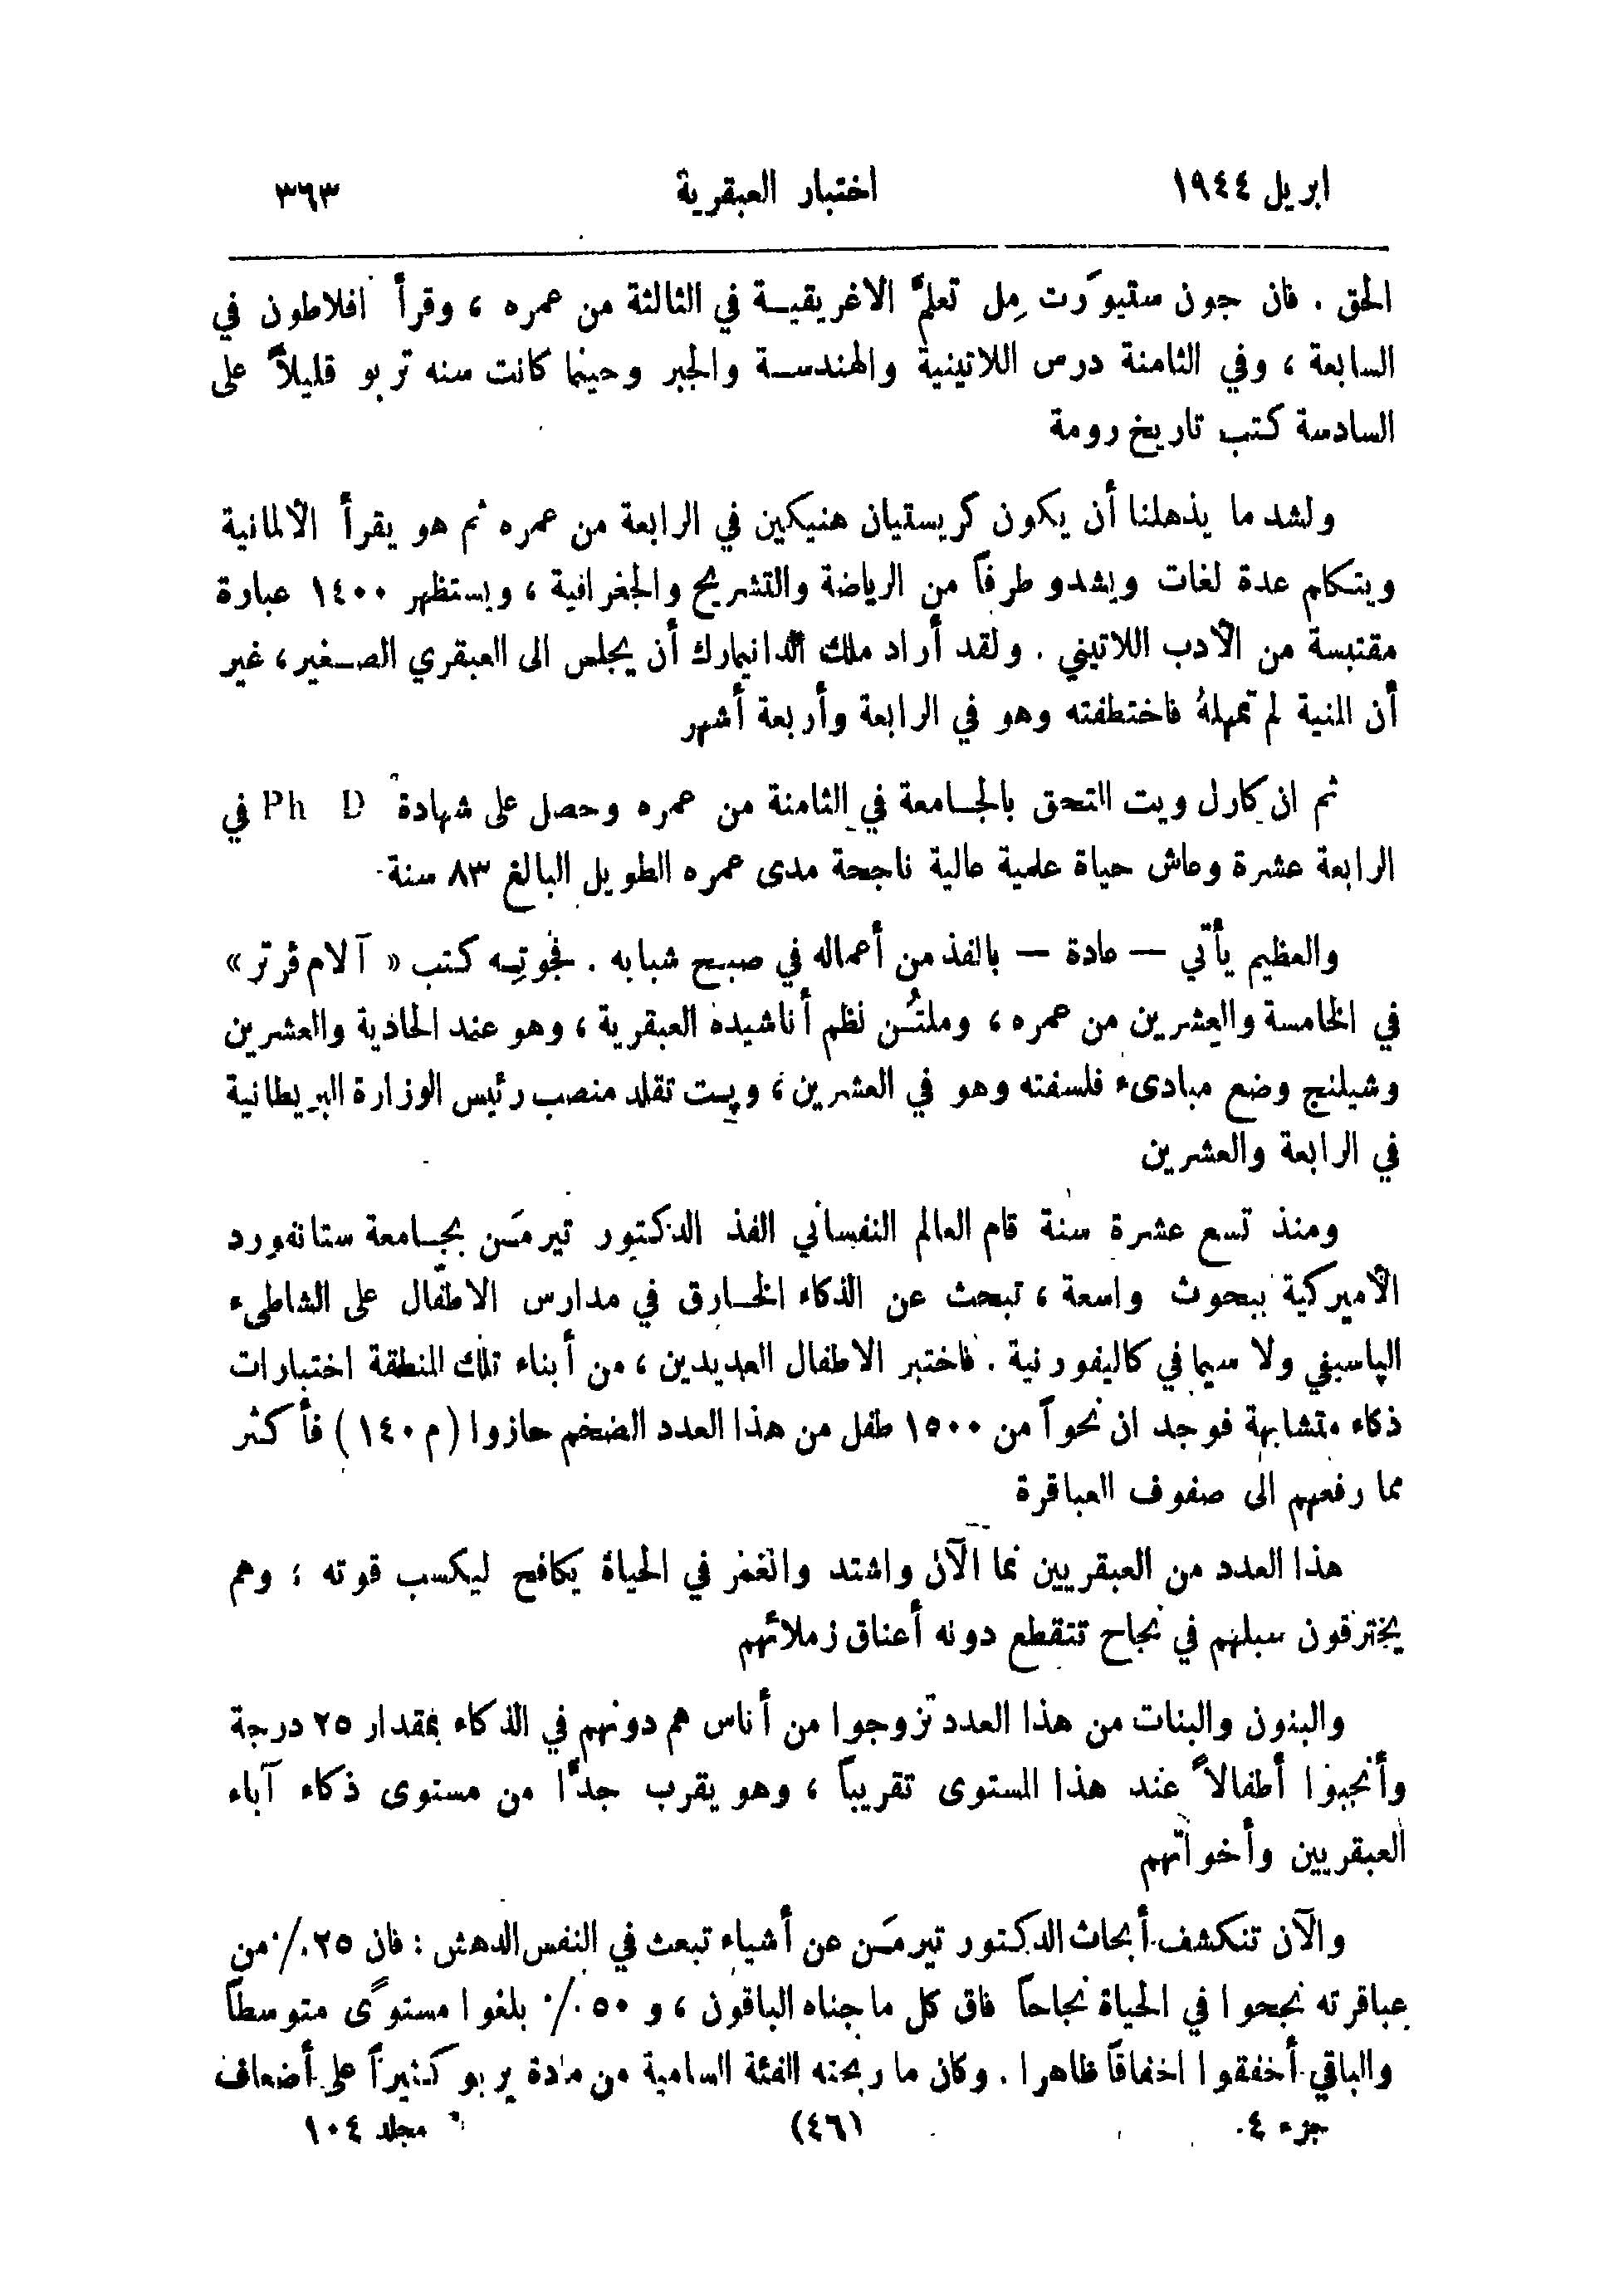 ابريل ١٩٤٤ اختبار العبقرية ٣٦٣
الحق . فان جون ستيوَرت مِل تعلمَّ الاغريقية في الثالثة من عمره ، وقرأ افلاطون في
السابعة ، وفي الثامنة درس اللاتينية والهندسة والجبر وحينما كانت سنه تربو قليلاً على
السادسة كتب تاريخ رومة
ولشد ما يذهلنا أن يكون كريستيان هنيكين في الرابعة من عمره ثم هو يقرأ الألمانية
ويتكلم عدة لغات ويشدو طرفاً من الرياضة والتشريح والجغرافية ، ويستظهر ١٤٠٠ عبارة
مقتبسة من الأدب اللاتيني . ولقد أراد ملك الدانيمارك أن يجلس الى العبقري الصغير ، غير
أن المنية لم تمهلهُ فاختطفته وهو في الرابعة وأربعة أشهر
ثم ان كارل ويت التحق بالجامعة في الثامنة من عمره وحصل على شهادة Ph D في
الرابعة عشرة وعاش حياة علمية عالية ناجحة مدى عمره الطويل البالغ ٨٣ سنة
والعظيم يأتي — عادة — بالفذ من أعماله في صبح شبابه . فجوتِه كتب « آلام ڤرتر »
في الخامسة والعشرين من عمره ، وملتُن نظم أناشيده العبقرية ، وهو عند الحادية والعشرين
وشيلنج وضع مبادىء فلسفته وهو في العشرين ، وپت تقلد منصب رئيس الوزارة البريطانية
في الرابعة والعشرين
ومنذ تسع عشرة سنة قام العالم النفساني الفذ الدكتور تيرمَن بجامعة ستانفورد
الأميركية ببحوث واسعة ، تبحث عن الذكاء الخارق في مدارس الاطفال على الشاطىء
الپاسيفي ولا سيما في كاليفورنية . فاختبر الاطفال العديدين ، من أبناء تلك المنطقة اختبارات
ذكاء متشابهة فوجد ان نحواً من ١٥٠٠ طفل من هذا العدد الضخم حازوا (م ١٤٠) فأكثر
مما رفعهم الى صفوف العباقرة
هذا العدد من العبقريين نما الآن واشتد وانغمز في الحياة يكافح ليكسب قوته ؛ وهم
يخترقون سبلهم في نجاح تتقطع دونه أعناق زملائهم
والبنون والبنات من هذا العدد تزوجوا من أناس هم دونهم في الذكاء بمقدار ٢٥ درجة
وأنجبوا أطفالاً عند هذا المستوى تقريباً ، وهو يقرب جدًّا من مستوى ذكاء آباء
العبقريين وأخواتهم
والآن تنكشف أبحاث الدكتور تيرمَن عن أشياء تبعث في النفس الدهش : فان ٢٥٪ من
عباقرته نجحوا في الحياة نجاحاً فاق كل ما جناه الباقون ، و ٥٠٪ بلغوا مستوًى متوسطاً
والباقي أخفقوا اخفاقاً ظاهرا . وكان ما ربحته الفئة السامية من مادة يربو كثيراً على أضعاف
جزء ٤ (٤٦) مجلد ١٠٤